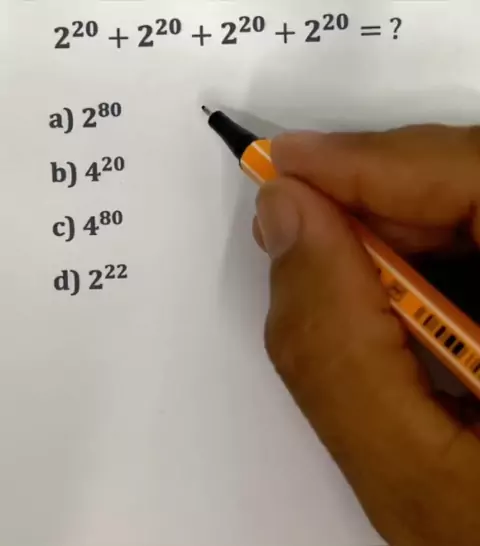 2²⁰ + 2²⁰ + 2²⁰ + 2²⁰ = ?
a) 2⁸⁰
b) 4²⁰
c) 4⁸⁰
d) 2²²